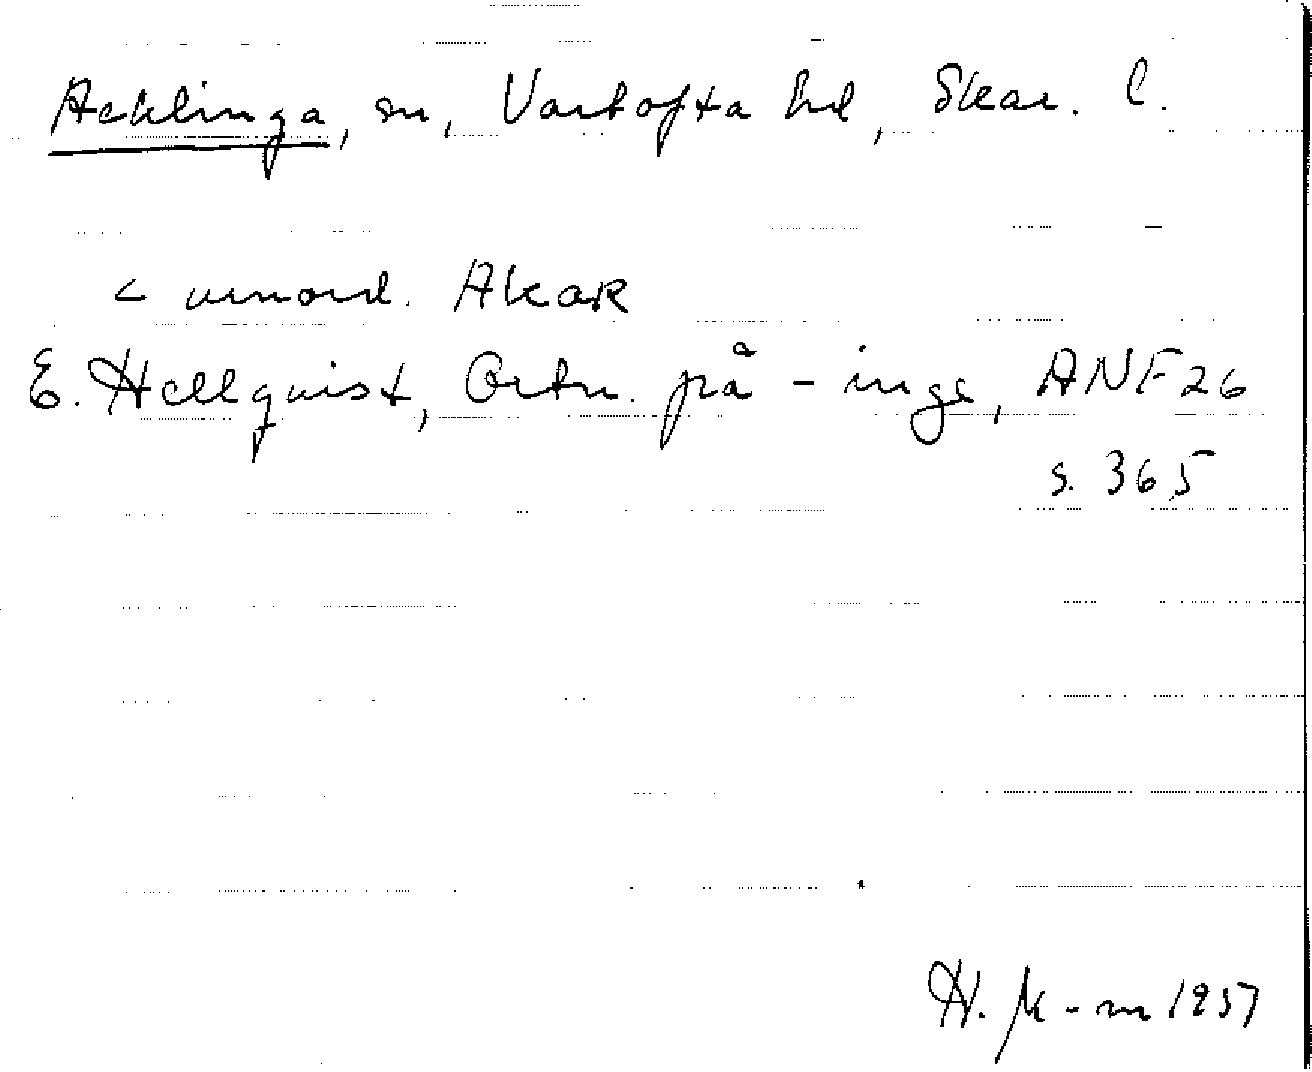 Acklinga, sn, Vartofta hd, Skar. l.
< urnord. AkaR
E. Hellquist, Ortn. på -inge, ANF 26
s. 365
H. K-m 1957